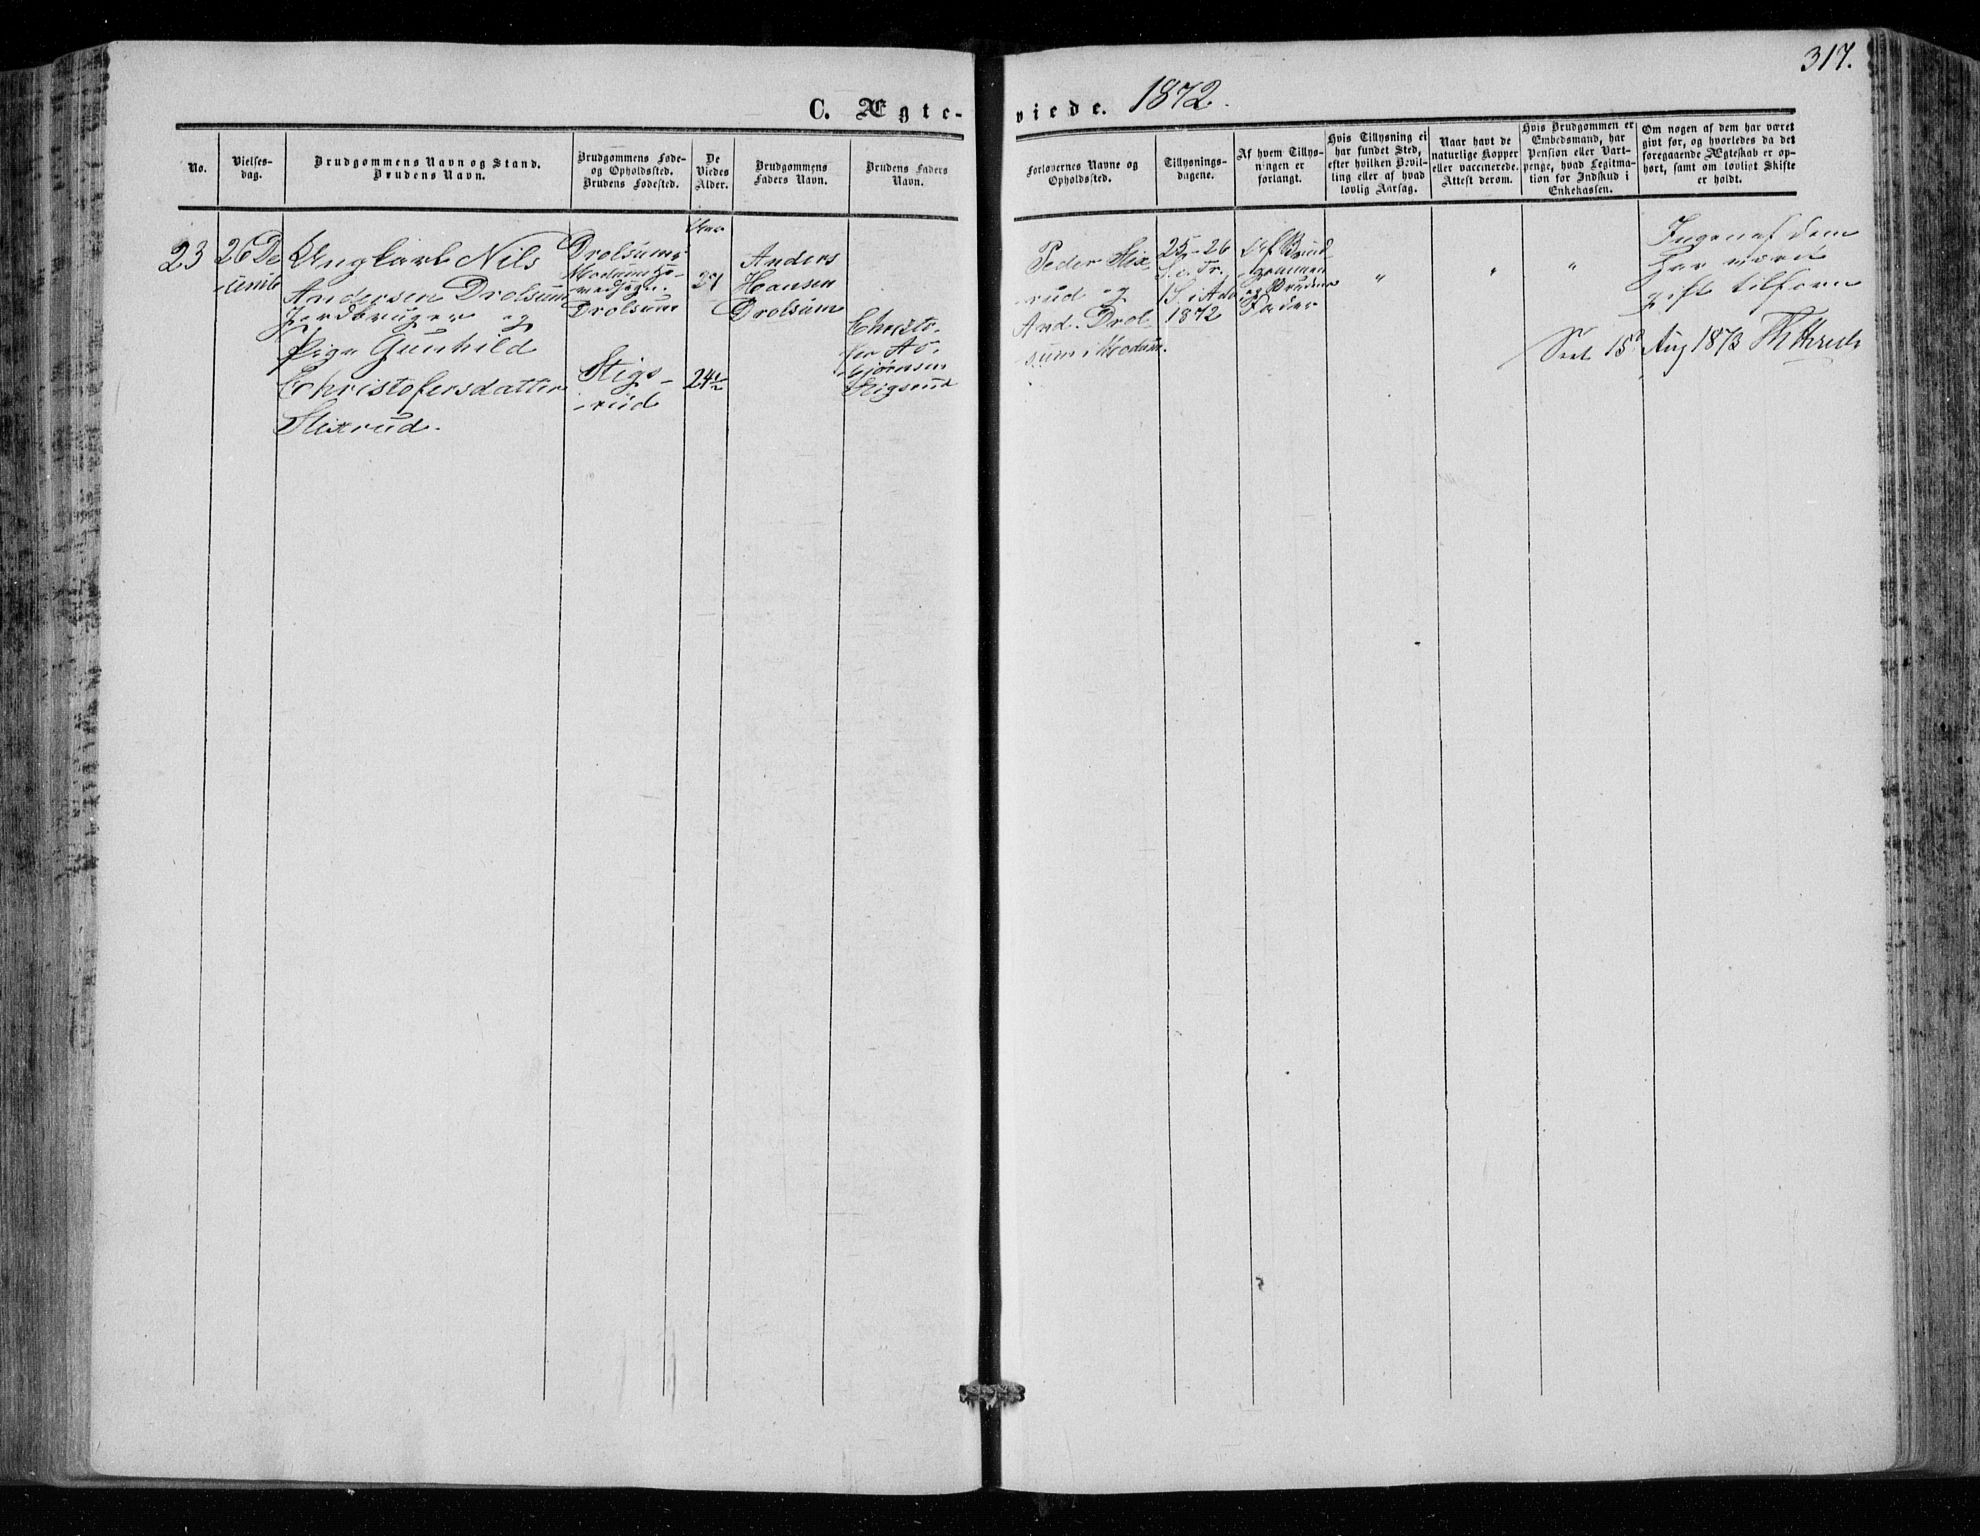 317.
C. Ægte-viede. 1872.
No.
Vielses-
dag.
Brudgommens Navn og Stand.
Brudens Navn.
Brudgommens Føde-
og Opholdssted.
Brudens Fødested.
De
Viedes
Alder.
Brudgommens
Faders Navn.
Brudens Faders
Navn.
Forlovernes Navne og
Opholdssted.
Tillysnings-
dagene.
Af hvem Tillys-
ningen er
forlangt.
Hvis Tillysning ei
har fundet Sted,
efter hvilken Bevil-
ling eller af hvad
lovlig Aarsag.
Naar havt de
naturlige Kopper
eller vaccinerede.
Attest derom.
Hvis Brudgommen er
Embedsmand, har
Pension eller Vart-
penge, hvad Legitma-
tion for Indskud i
Enkekassen.
Om nogen af dem har været
givt før, og hvorledes da det
foregaaende Ægteskab er op-
hørt, samt om lovligt Skifte
er holdt.
23
26 De-
cemb
Ungkarl Nils
Andersen Drolsum
Jordbruger og
Pige Gunhild
Christofersdatter
Stixrud.
Drolsum i
Modums Ho-
vedsogn.
Drolsum
Stigs-
rud
Aar
27
24½
Anders
Hansen
Drolsum
Christo-
fer As-
bjørnsen
Stigsrud
Peder Stix-
rud og
And. Drol-
sum i Modum.
25-26
S. e. Tr.
1 S. i Adv.
1872
Af Brud-
gommen
og Brudens
Fader
"
"
"
Ingen af dem
har været
gift tilforn
Seet 15d Aug 1873